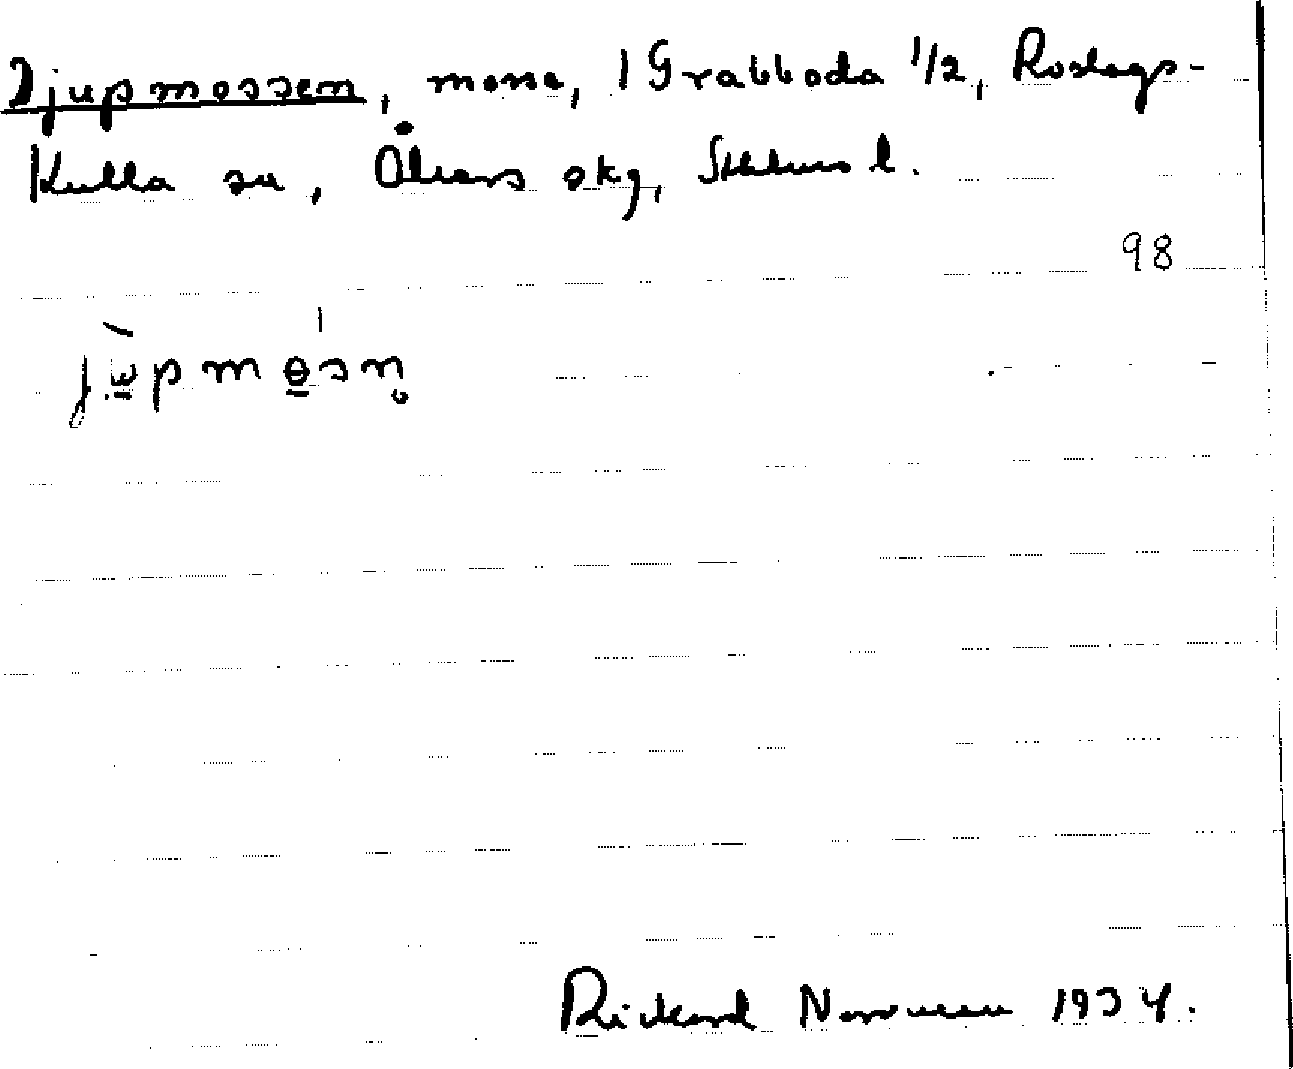 Djupmossen, mosse, 1 Grabboda 1/2, Roslags-
Kulla sn, Åkers skg, Sthlms l.
98
jùpmósn̥
Rickard Norrman 1934.